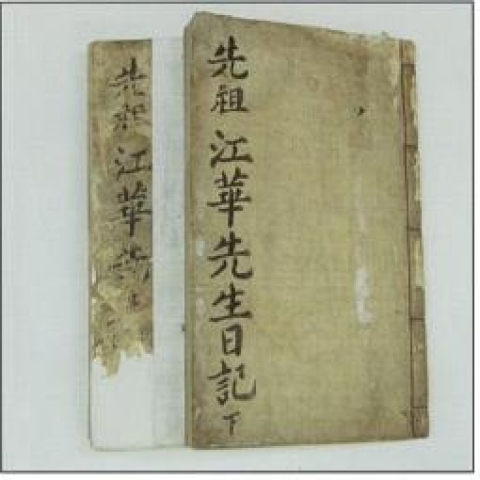 先祖江華先生日記下
先祖江華